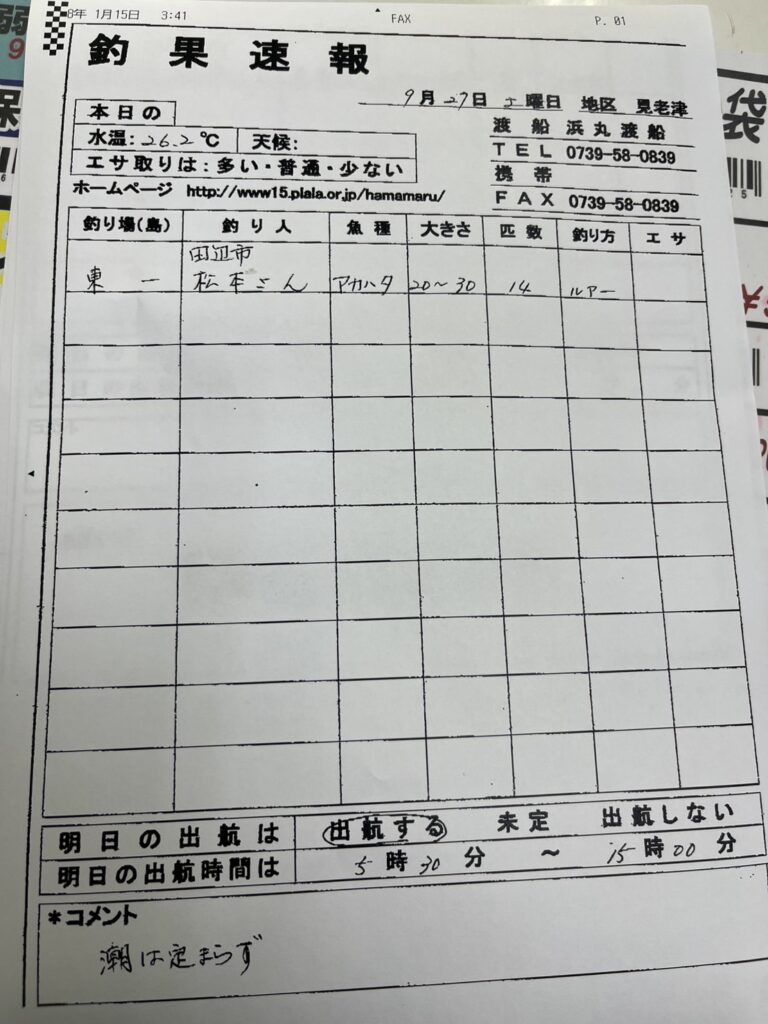 8年 1月15日 3:41 FAX P. 01
釣果速報
9月27日 土曜日 地区 見老津
本日の
水温:26.2℃ 天候:
エサ取りは:多い・普通・少ない
渡船 浜丸渡船
TEL 0739-58-0839
携帯
FAX 0739-58-0839
ホームページ http://www15.plala.or.jp/hamamaru/
釣り場(島) 釣り人 魚種 大きさ 匹数 釣り方 エサ
田辺市
東一 松本さん アカハタ 20〜30 14 ルアー
明日の出航は 出航する 未定 出航しない
明日の出航時間は 5時30分 〜 15時00分
*コメント
潮は定まらず
袋